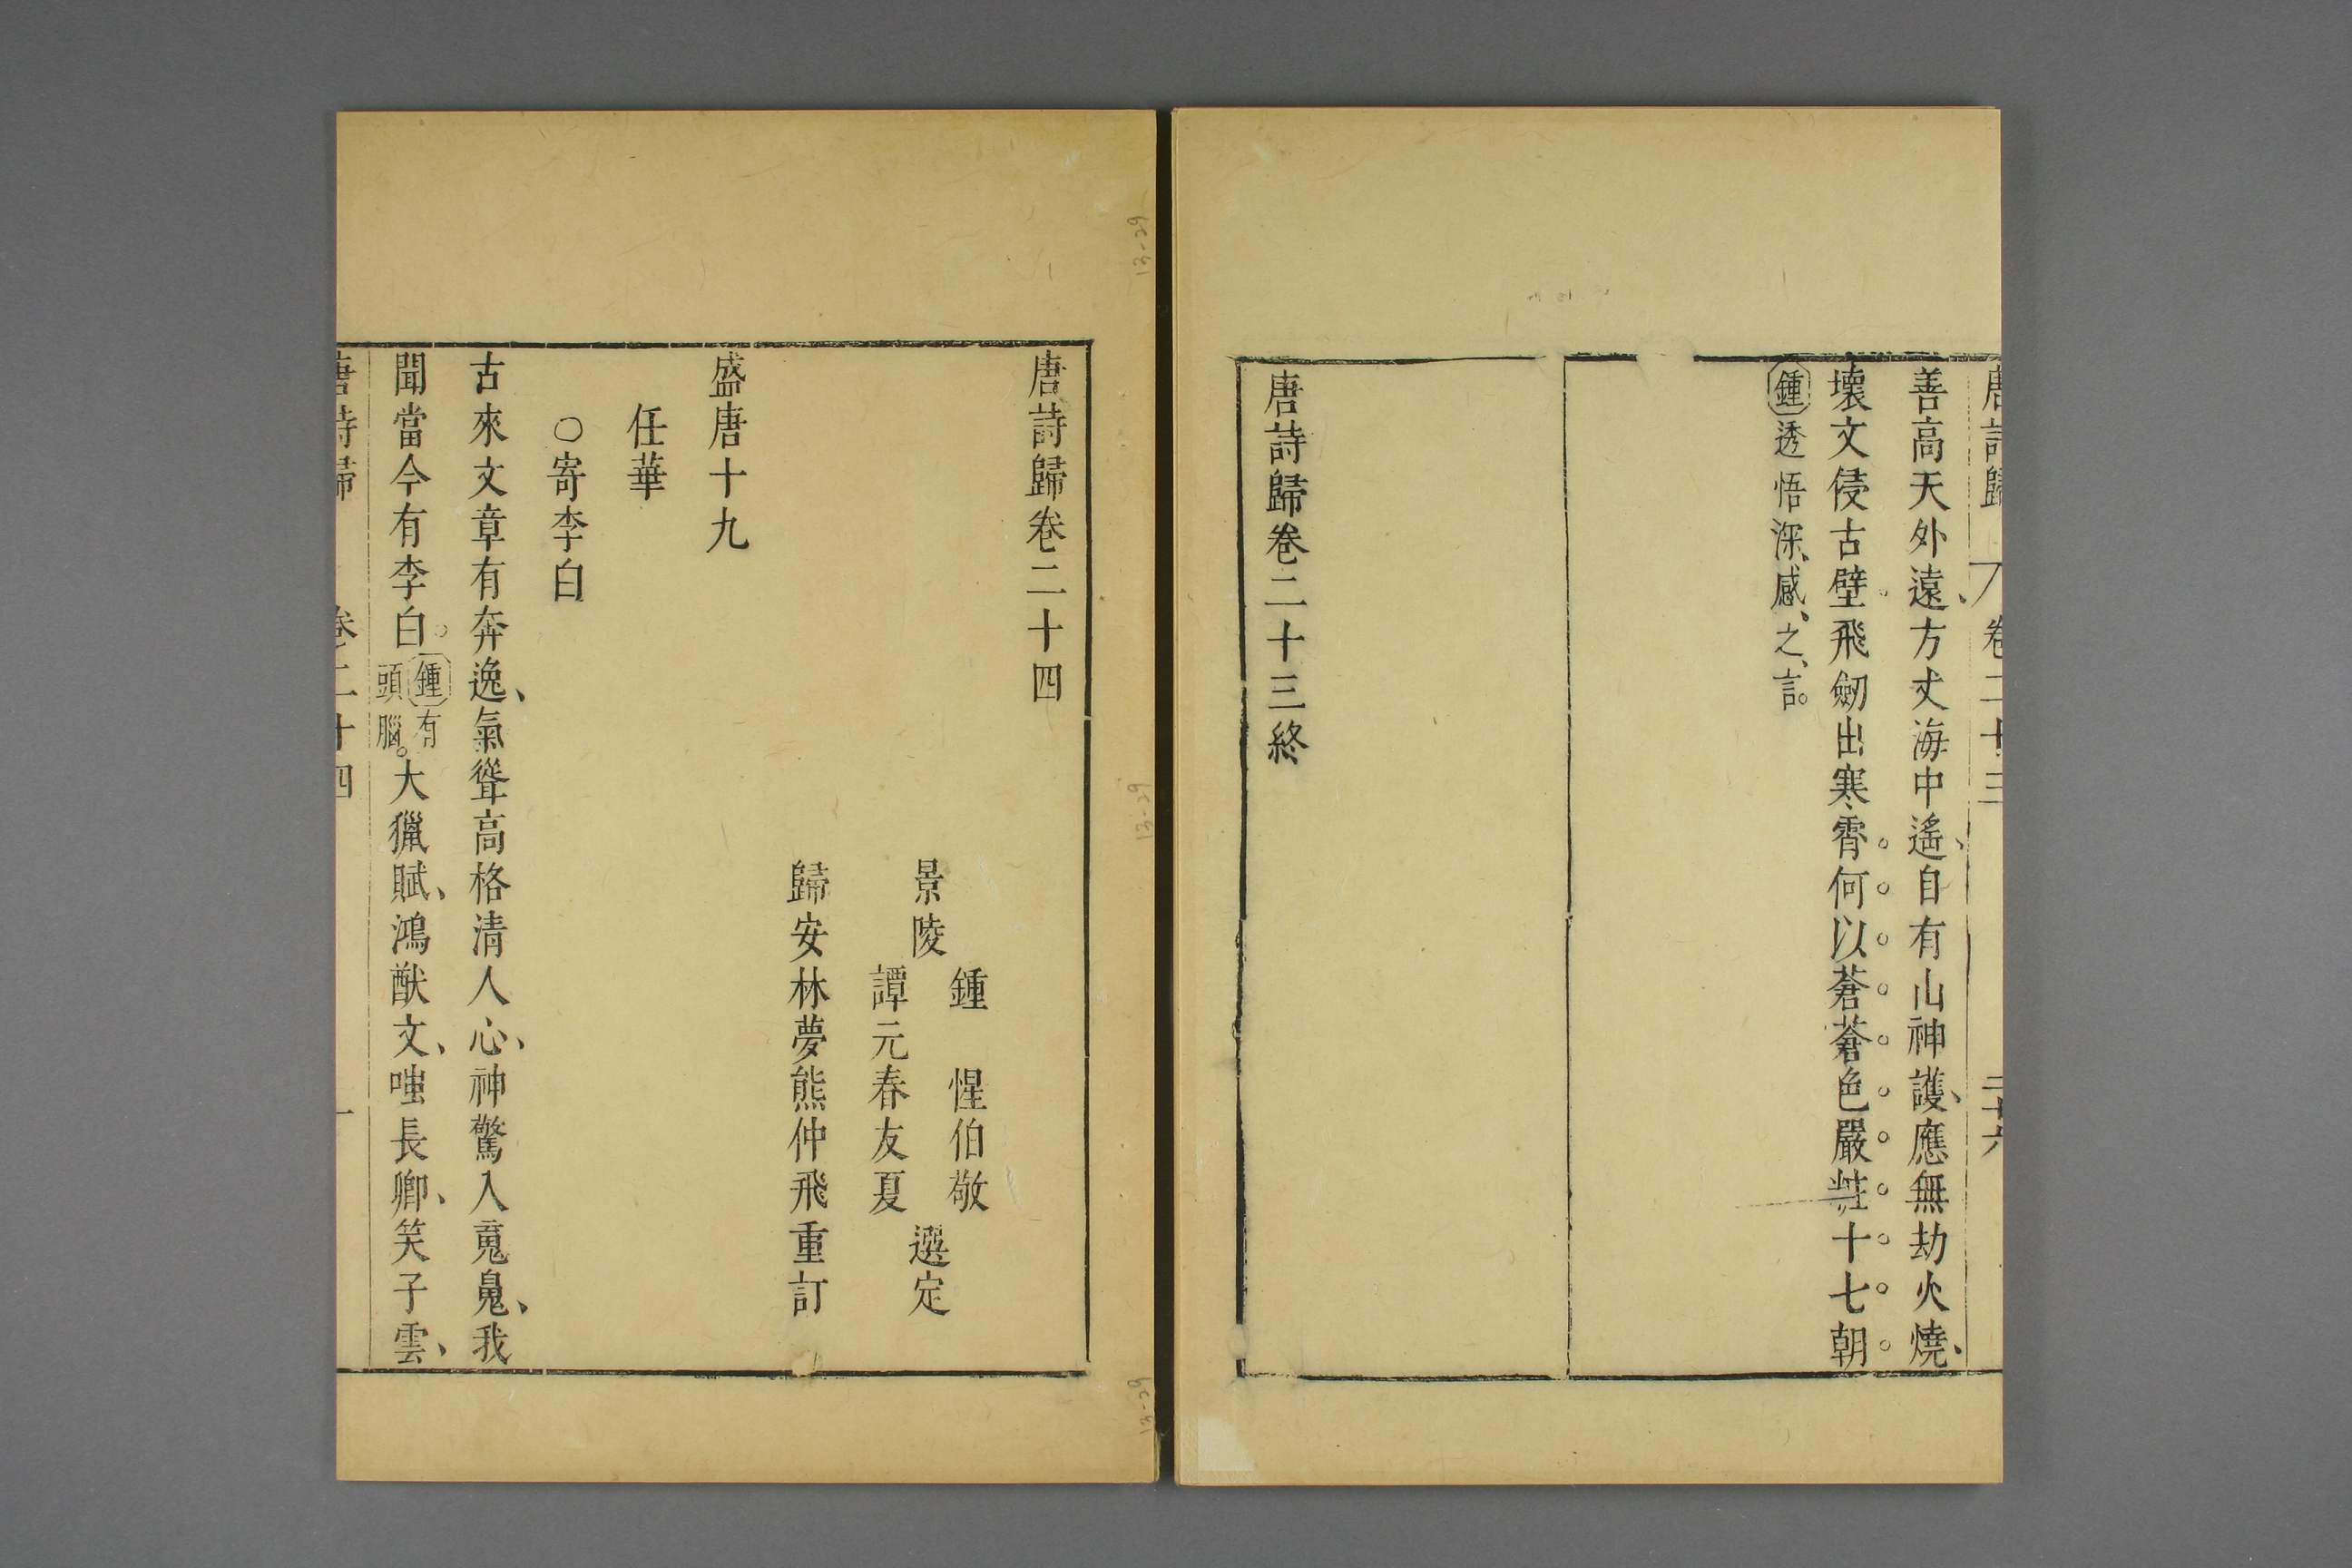 唐詩歸 卷二十三 二十六
善高天外遠、方丈海中遙、自有山神護、應無劫火燒、
壞文侵古壁飛劒出寒霄何以蒼蒼色嚴粧十七朝
鍾透悟深、感、之、言。
唐詩歸卷二十三終
唐詩歸卷二十四
鍾 惺伯敬
景陵 選定
譚元春友夏
歸安林夢熊仲飛重訂
盛唐十九
任華
○寄李白
古來文章有奔逸、氣聳高格清人心、神驚入䰟鬼、我
聞當今有李白。鍾有頭腦。大獵賦、鴻猷文、嗤長卿、笑子雲、
唐詩歸 卷二十四 一